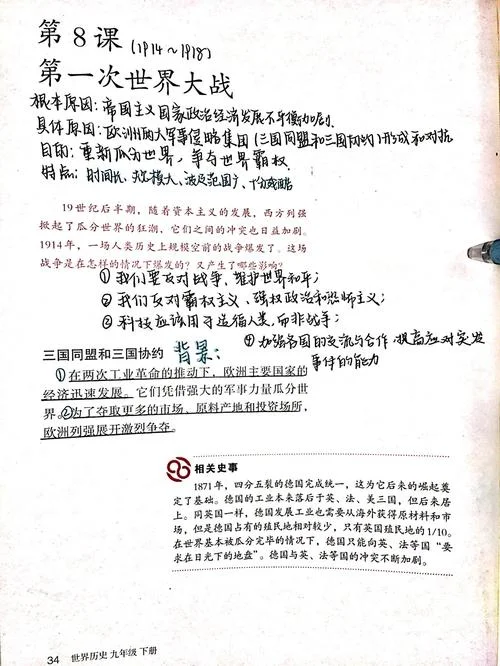 第 8 课 (1914～1918)
第一次世界大战
根本原因：帝国主义国家政治经济发展不平衡加剧.
具体原因：欧洲两大军事侵略集团(三国同盟和三国协约)形成和对抗
目的：重新瓜分世界，争夺世界霸权.
特点：时间长、规模大、波及范围广、十分残酷
19 世纪后半期，随着资本主义的发展，西方列强
掀起了瓜分世界的狂潮，它们之间的冲突也日益加剧。
1914 年，一场人类历史上规模空前的战争爆发了。这场
战争是在怎样的情况下爆发的？又产生了哪些影响？
①我们要反对战争，维护世界和平；
②我们反对霸权主义、强权政治和恐怖主义；
③科技应该用于造福人类，而非战争；
④加强各国的交流与合作，提高应对突发
事件的能力
三国同盟和三国协约 背景：
①在两次工业革命的推动下，欧洲主要国家的
经济迅速发展。它们凭借强大的军事力量瓜分世
界。②为了夺取更多的市场、原料产地和投资场所，
欧洲列强展开激烈争夺。
相关史事
1871 年，四分五裂的德国完成统一，这为它后来的崛起奠
定了基础。德国的工业本来落后于英、法、美三国，但后来居
上。同英国一样，德国发展工业也需要从海外获得原材料和市
场，但是德国占有的殖民地相对较少，只有英国殖民地的 1/10。
在世界基本被瓜分完毕的情况下，德国只能向英、法等国“要
求在日光下的地盘”。德国与英、法等国的冲突不断加剧。
34 世界历史 九年级 下册